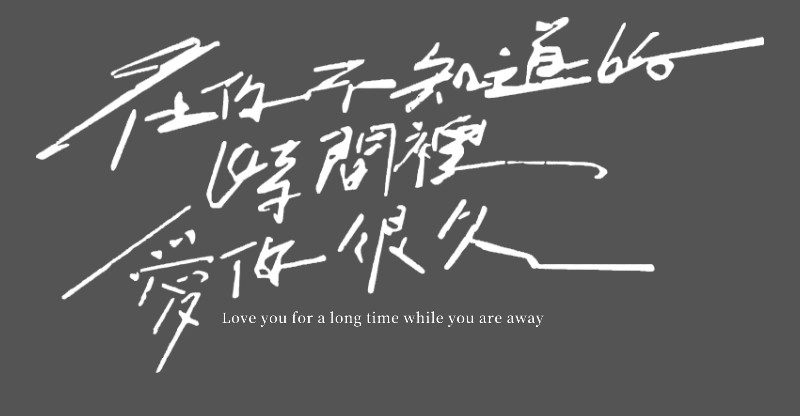 在你不知道的
時間裡
愛你很久
Love you for a long time while you are away